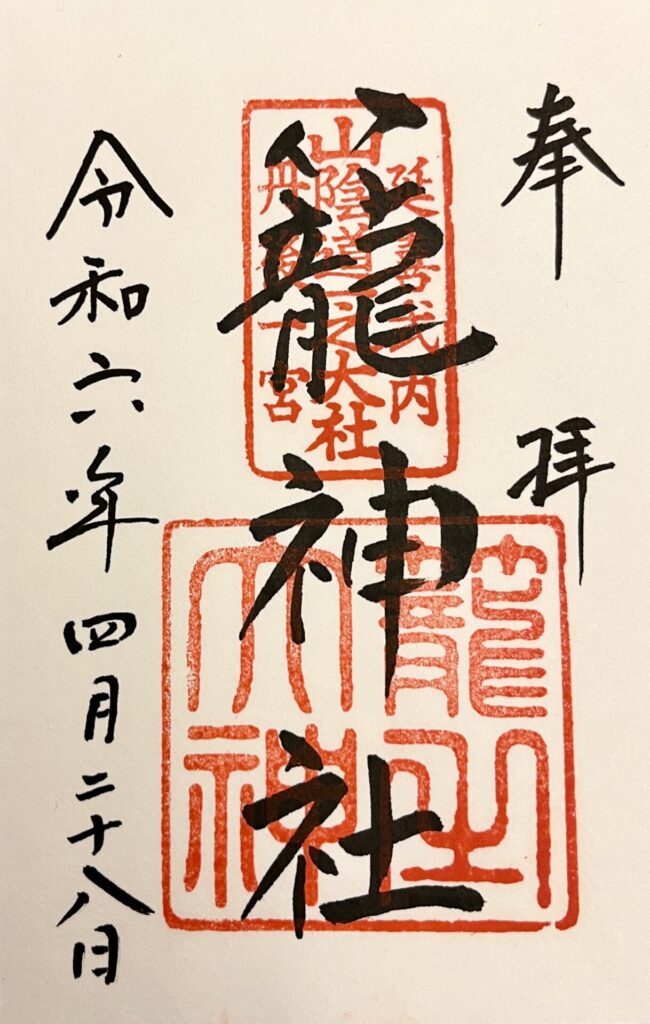 奉拝
延喜式内
山陰道一之大社
丹後一宮
籠神社
籠之
大神
令和六年四月二十八日